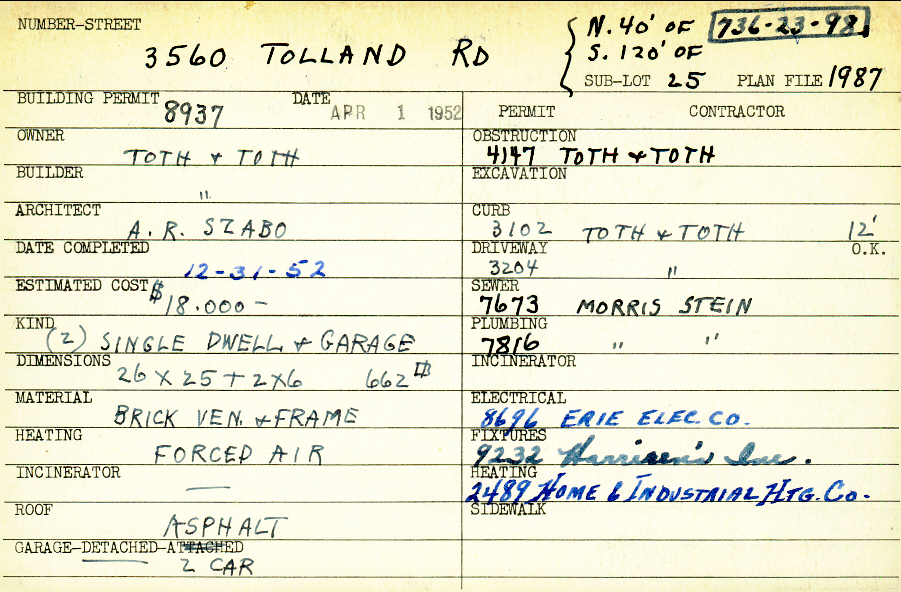 NUMBER-STREET
3560 TOLLAND RD
N. 40' OF 736-23-98
S. 120' OF
SUB-LOT 25 PLAN FILE 1987
BUILDING PERMIT 8937 DATE APR 1 1952
PERMIT CONTRACTOR
OWNER TOTH & TOTH
OBSTRUCTION 4147 TOTH & TOTH
BUILDER "
EXCAVATION
ARCHITECT A. R. SZABO
CURB 3102 TOTH & TOTH 12'
DATE COMPLETED 12-31-52
DRIVEWAY 3204 " O.K.
ESTIMATED COST $18.000-
SEWER 7673 MORRIS STEIN
KIND (2) SINGLE DWELL & GARAGE
PLUMBING 7816 " "
DIMENSIONS 26 X 25 + 2X6 662
INCINERATOR
MATERIAL BRICK VEN. & FRAME
ELECTRICAL 8696 ERIE ELEC. CO.
HEATING FORCED AIR
FIXTURES 9232 Harrison's Inc.
INCINERATOR —
HEATING 2489 HOME & INDUSTRIAL HTG. CO.
ROOF ASPHALT
SIDEWALK
GARAGE-DETACHED-ATTACHED
2 CAR